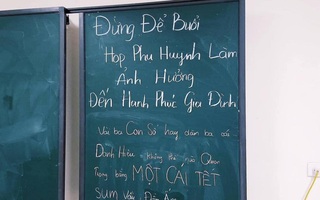 Đừng Để Buổi
Họp Phụ Huynh Làm
Ảnh Hưởng
Đến Hạnh Phúc Gia Đình.
Vài ba Con Số hay dăm ba cái
Danh Hiệu không thể nào
Trọng bằng MỘT CÁI TẾT
SUM Vầy